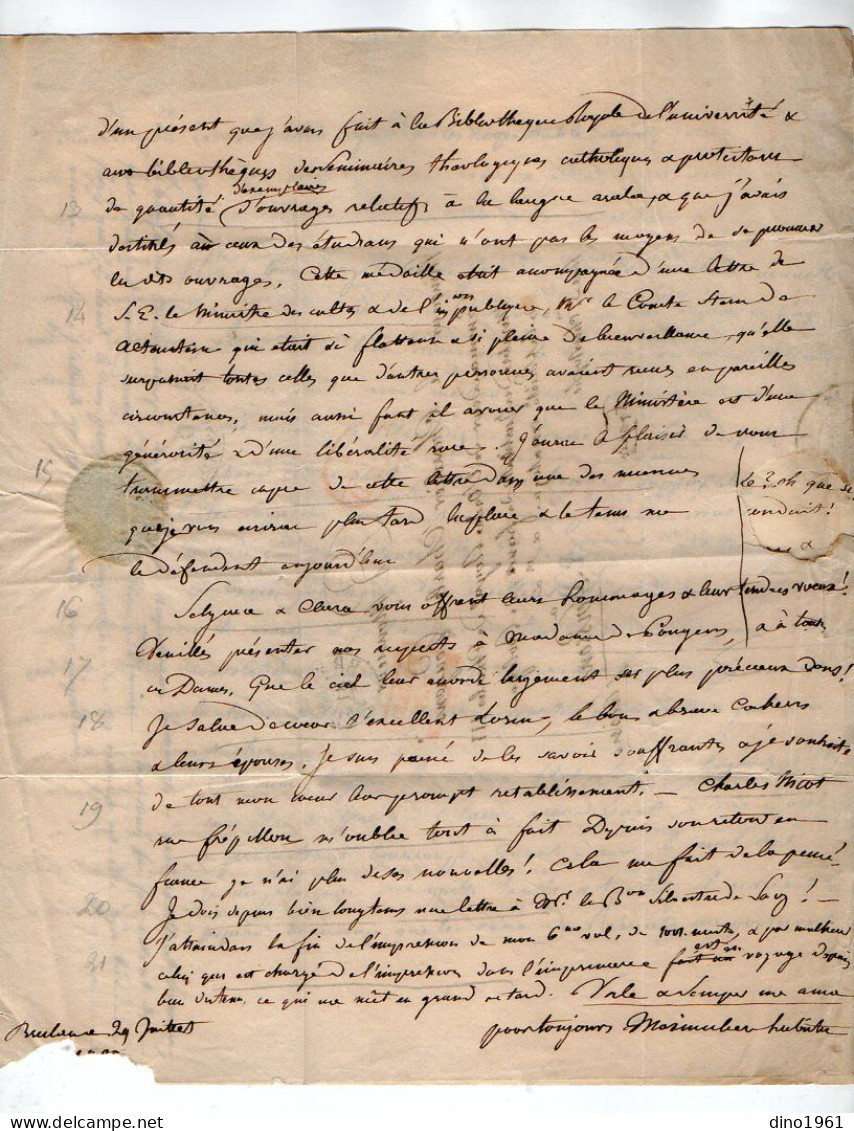 d'un présent que j'avais fait à la Bibliotheque Royale de l'université &
aux bibliothèques des Seminaires theologiques catholiques & protestans
d'exemplaires
13
de quantité d'ouvrages relatifs à la langue arabe, & que j'avais
destinés à ceux des étudians qui n'ont pas les moyens de se procurer
les dits ouvrages. Cette médaille était accompagnée d'une lettre de
14
S. E. le Ministre des cultes & de l'ins^on publique, Mr le Comte Stein d'
Altenstein qui etait si flatteuse & si pleine de bienveillance, qu'elle
surpassait toutes celles que d'autres personnes avaient reçues en pareilles
circonstances, mais aussi faut il avouer que le Ministère est d'une
générosité & d'une libéralité rare. J'aurai le plaisir de vous
15
transmettre copie de cette lettre dans une des miennes
que je vous écrirai plus tard la place & le tems me
le défendent aujourd'hui
Le 3. oh que
16
Selyma & Clara vous offrent leurs hommages & leur tendres voeux!
Veuillés présenter nos respects à Madame de Pougens, & à toutes
17
ces Dames. Que le ciel leur accorde largement ses plus précieux dons!
18
Je salue de coeur l'excellent Lorin, le bon & brave
& leurs épouses. Je suis peiné de les savoir souffrantes & je souhaite
19
de tout mon coeur leur prompt retablissement. — Charles Nicot
me m'oublie tout à fait Depuis son retour en
france je n'ai plus de ses nouvelles! Cela me fait de la peine!
20
Je dois depuis bien longtems une lettre à Mr. le B^on Silvestre de Sacy! —
J'attendais la fin de l'impression de mon 6^me vol. de 1001. nuits, & par malheur
21
celui qui est chargé de l'impression dans l'imprimerie est en voyage depuis
bien du tems, ce qui me met en grand retard. Vale & semper me ama
Breslau 29 Juillet
pour toujours Maximilien habicht
dino1961